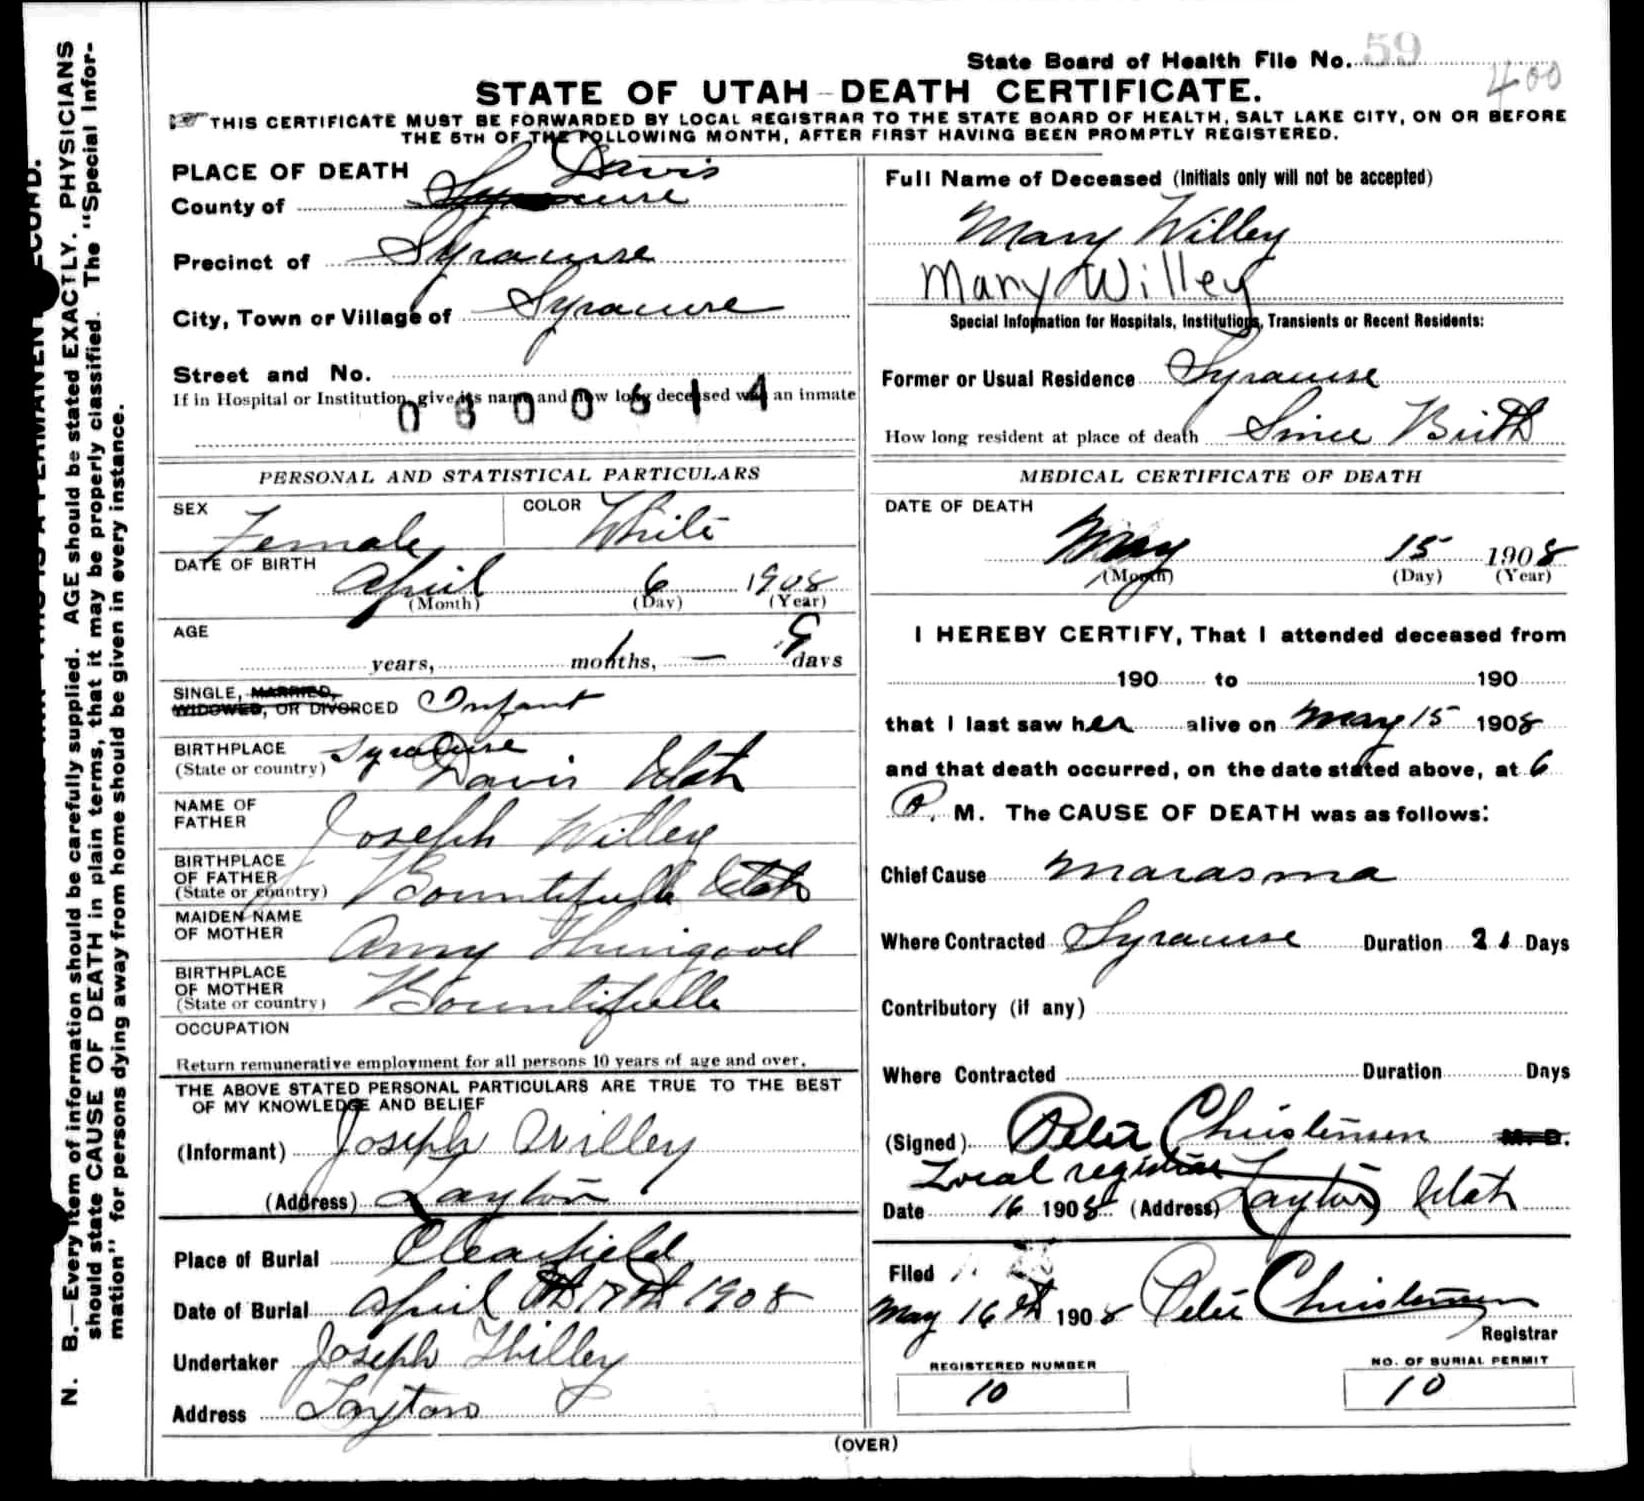 State Board of Health File No. 59
400
STATE OF UTAH - DEATH CERTIFICATE.
THIS CERTIFICATE MUST BE FORWARDED BY LOCAL REGISTRAR TO THE STATE BOARD OF HEALTH, SALT LAKE CITY, ON OR BEFORE
THE 5TH OF THE FOLLOWING MONTH, AFTER FIRST HAVING BEEN PROMPTLY REGISTERED.
PLACE OF DEATH
County of Davis Syracuse
Precinct of Syracuse
City, Town or Village of Syracuse
Street and No.
If in Hospital or Institution, give its name and how long deceased was an inmate
PERSONAL AND STATISTICAL PARTICULARS
SEX Female COLOR White
DATE OF BIRTH April 6 1908
(Month) (Day) (Year)
AGE
years, 1 months, — 9 days
SINGLE, MARRIED,
WIDOWED, OR DIVORCED Infant
BIRTHPLACE Syracuse
(State or country) Davis Utah
NAME OF
FATHER Joseph Willey
BIRTHPLACE
OF FATHER
(State or country) Bountifull Utah
MAIDEN NAME
OF MOTHER Amy Thurgood
BIRTHPLACE
OF MOTHER
(State or country) Bountifulle
OCCUPATION
Return remunerative employment for all persons 10 years of age and over.
THE ABOVE STATED PERSONAL PARTICULARS ARE TRUE TO THE BEST
OF MY KNOWLEDGE AND BELIEF
(Informant) Joseph Willey
(Address) Layton
Place of Burial Clearfield
Date of Burial April 17th 1908
Undertaker Joseph Willey
Address Layton
Full Name of Deceased (Initials only will not be accepted)
Mary Willey
Mary Willey
Special Information for Hospitals, Institutions, Transients or Recent Residents:
Former or Usual Residence Syracuse
How long resident at place of death Since Birth
MEDICAL CERTIFICATE OF DEATH
DATE OF DEATH
May 15 1908
(Month) (Day) (Year)
I HEREBY CERTIFY, That I attended deceased from
190 to 190
that I last saw her alive on May 15 1908
and that death occurred, on the date stated above, at 6
P. M. The CAUSE OF DEATH was as follows:
Chief Cause Marasma
Where Contracted Syracuse Duration 21 Days
Contributory (if any)
Where Contracted Duration Days
(Signed) Peter Christensen M. D.
Local registrar
Date 16 1908 (Address) Layton Utah
Filed
May 16th 1908 Peter Christensen
Registrar
REGISTERED NUMBER
10
NO. OF BURIAL PERMIT
10
(OVER)
N. B.—Every item of information should be carefully supplied. AGE should be stated EXACTLY. PHYSICIANS
should state CAUSE OF DEATH in plain terms, that it may be properly classified. The "Special Infor-
mation" for persons dying away from home should be given in every instance.